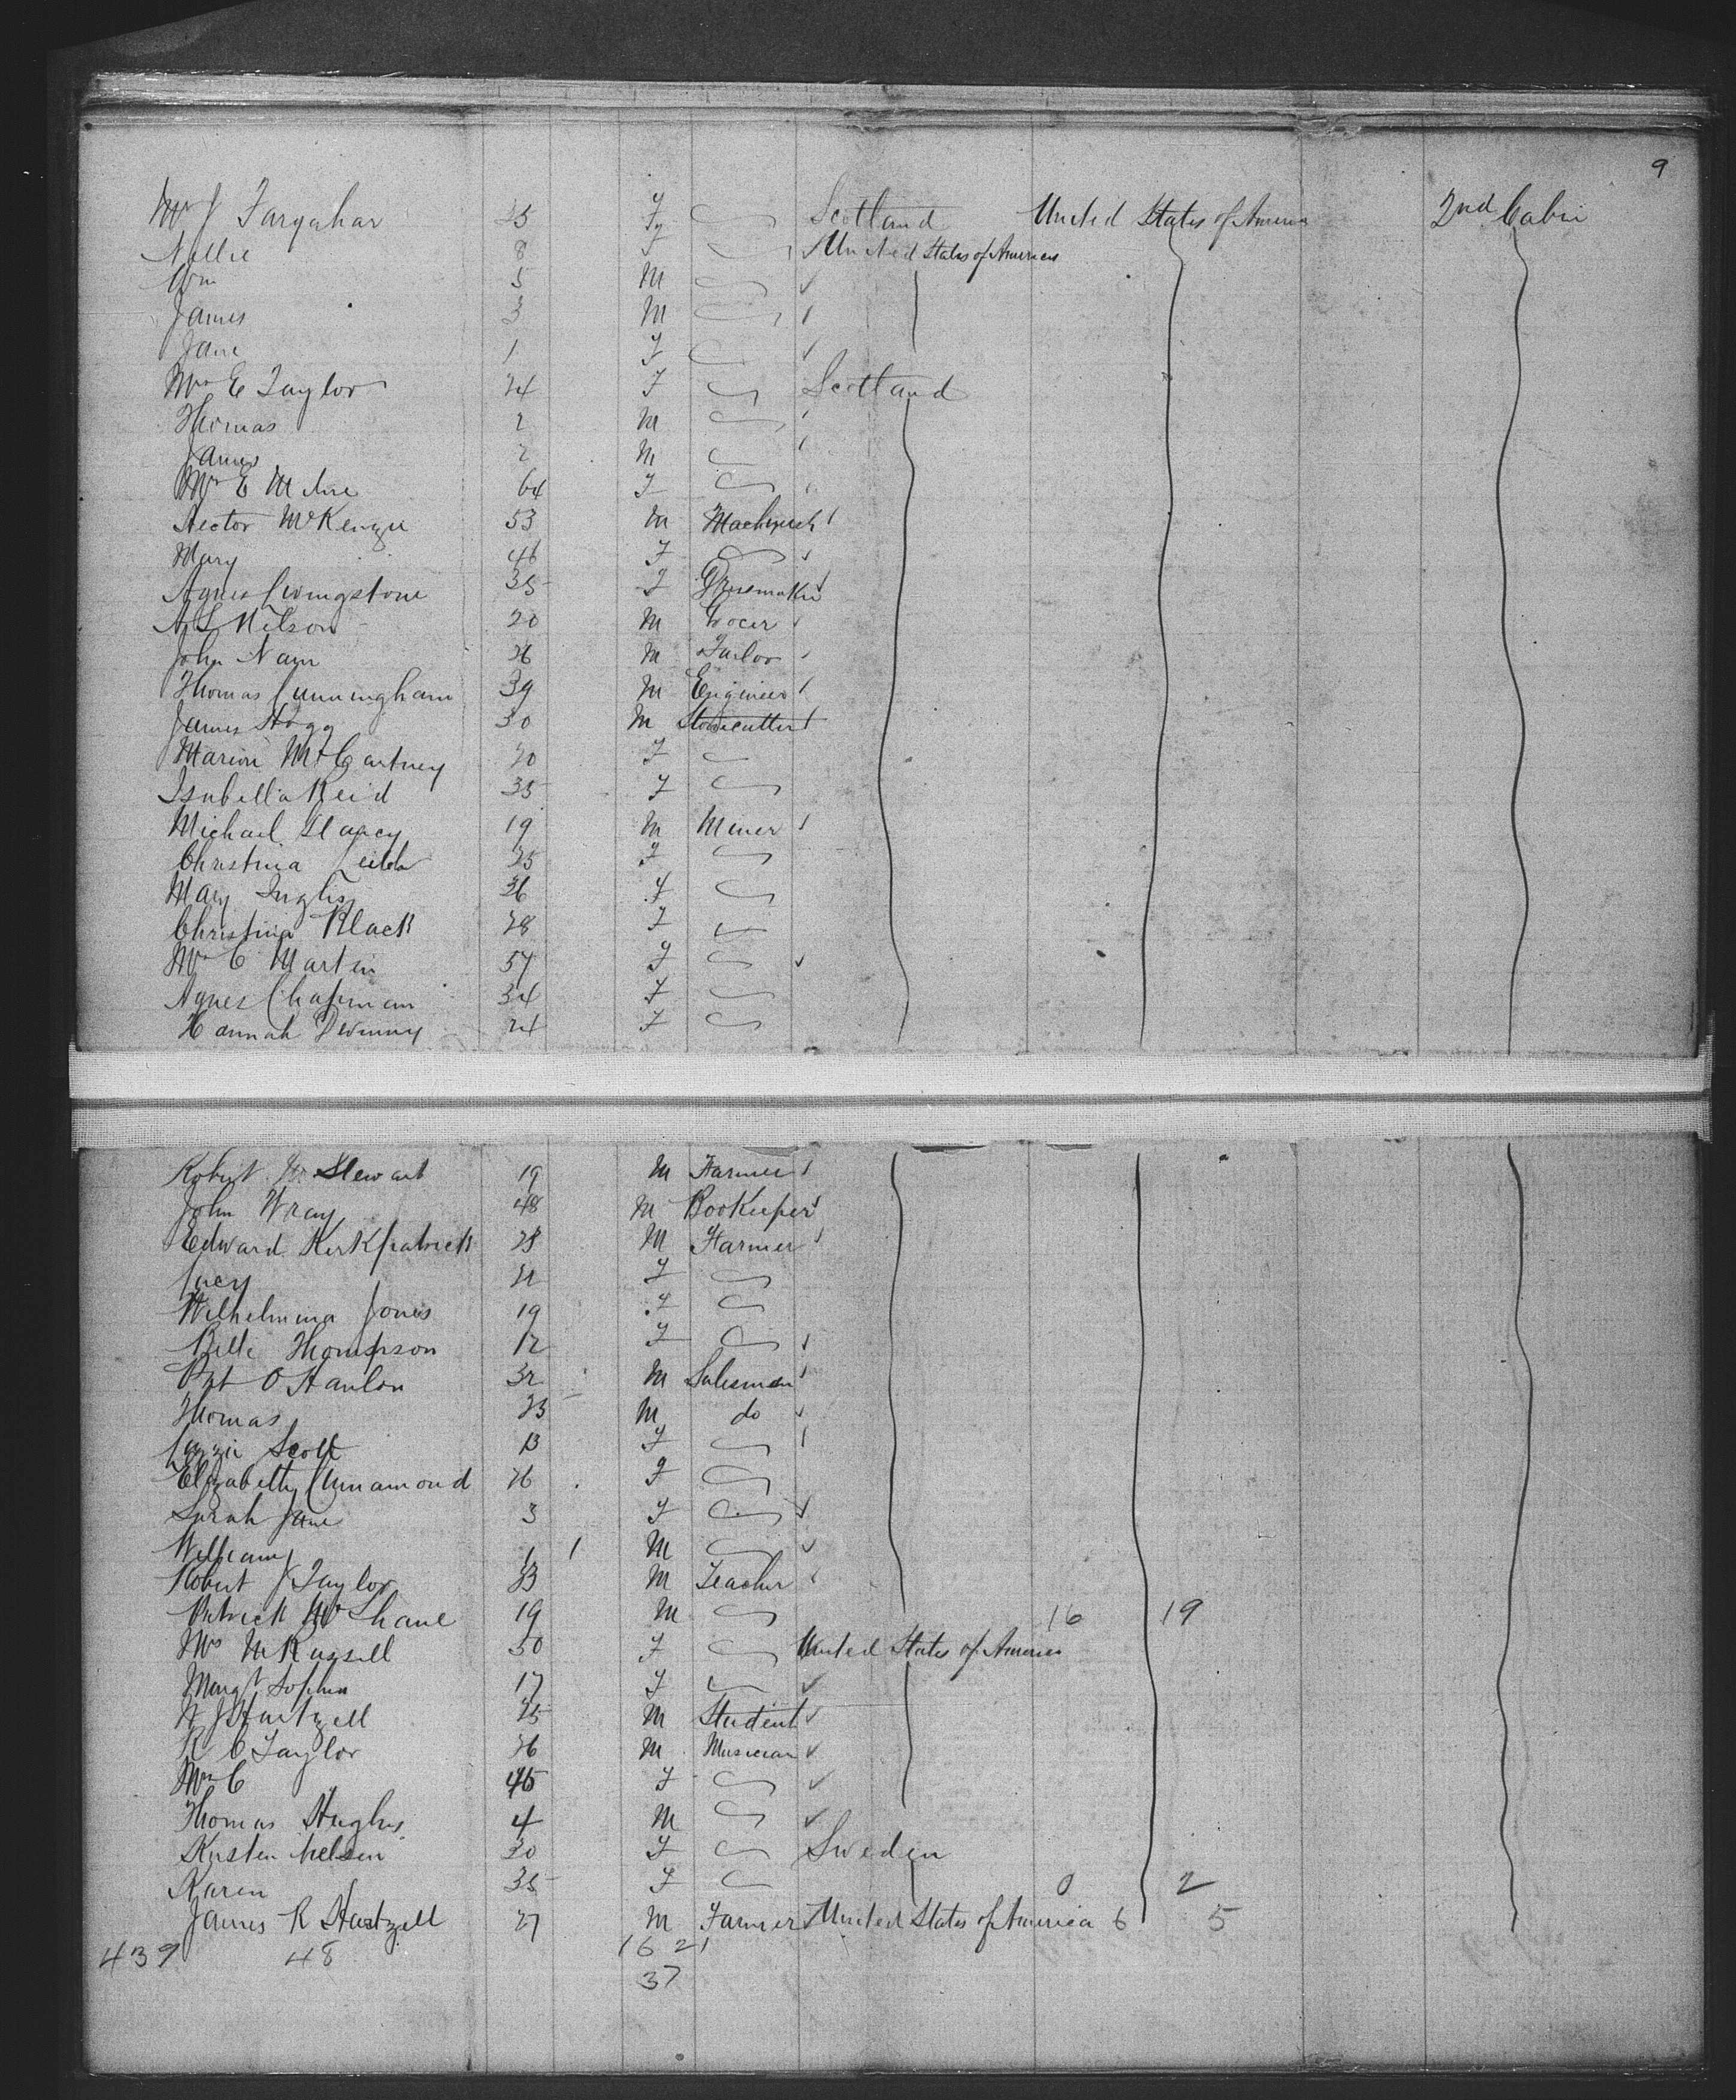 9
Mrs J Farquhar 35 F Scotland United States of America 2nd Cabin
Nellie 8 F United States of America
Wm 5 M
James 3 M
Jane 1 F
Mrs E Taylor 24 F Scotland
Thomas 2 M
James 2 M
Mrs E Milne 64 F
Hector McKenzie 53 M Machinist
Mary 46 F
Agnes Livingstone 35 F Dressmaker
A L Nilson 20 M Grocer
John Nairn 26 M Tailor
Thomas Cunningham 39 M Engineer
James Hogg 30 M Stonecutter
Marion McCartney 20 F
Isabella Reid 35 F
Michael Clancy 19 M Miner
Christina Leitch 25 F
Mary Inglis 36 F
Christina Black 28 F
Mrs C Martin 57 F
Agnes Chapman 34 F
Hannah 24 F
Robert Stewart 19 M Farmer
John Wray 48 M Bookeeper
Edward Kirkpatrick 28 M Farmer
Lucy F
Wilhelmina Jones 19 F
Belle Thompson 12 F
Pat O Hanlon 32 M Salesman
Thomas 23 M do
Lizzie Scott 13 F
Elizabeth Cinnamond 26 F
Sarah Jane 3 F
William 1 1 M
Robert J Taylor 33 M Teacher
Patrick McShane 19 M 16 19
Mrs M Russell 50 F United States of America
Margt Sophia 17 F
Hartzell 25 M Student
R C Taylor 26 M Musician
Mrs C 45 F
Thomas Hughes 4 M
Kirsten Nelsen 30 F Sweden
Karen 35 F 0 2
James R Hartzell 27 M Farmer United States of America 6 5
439 48 16 21
37